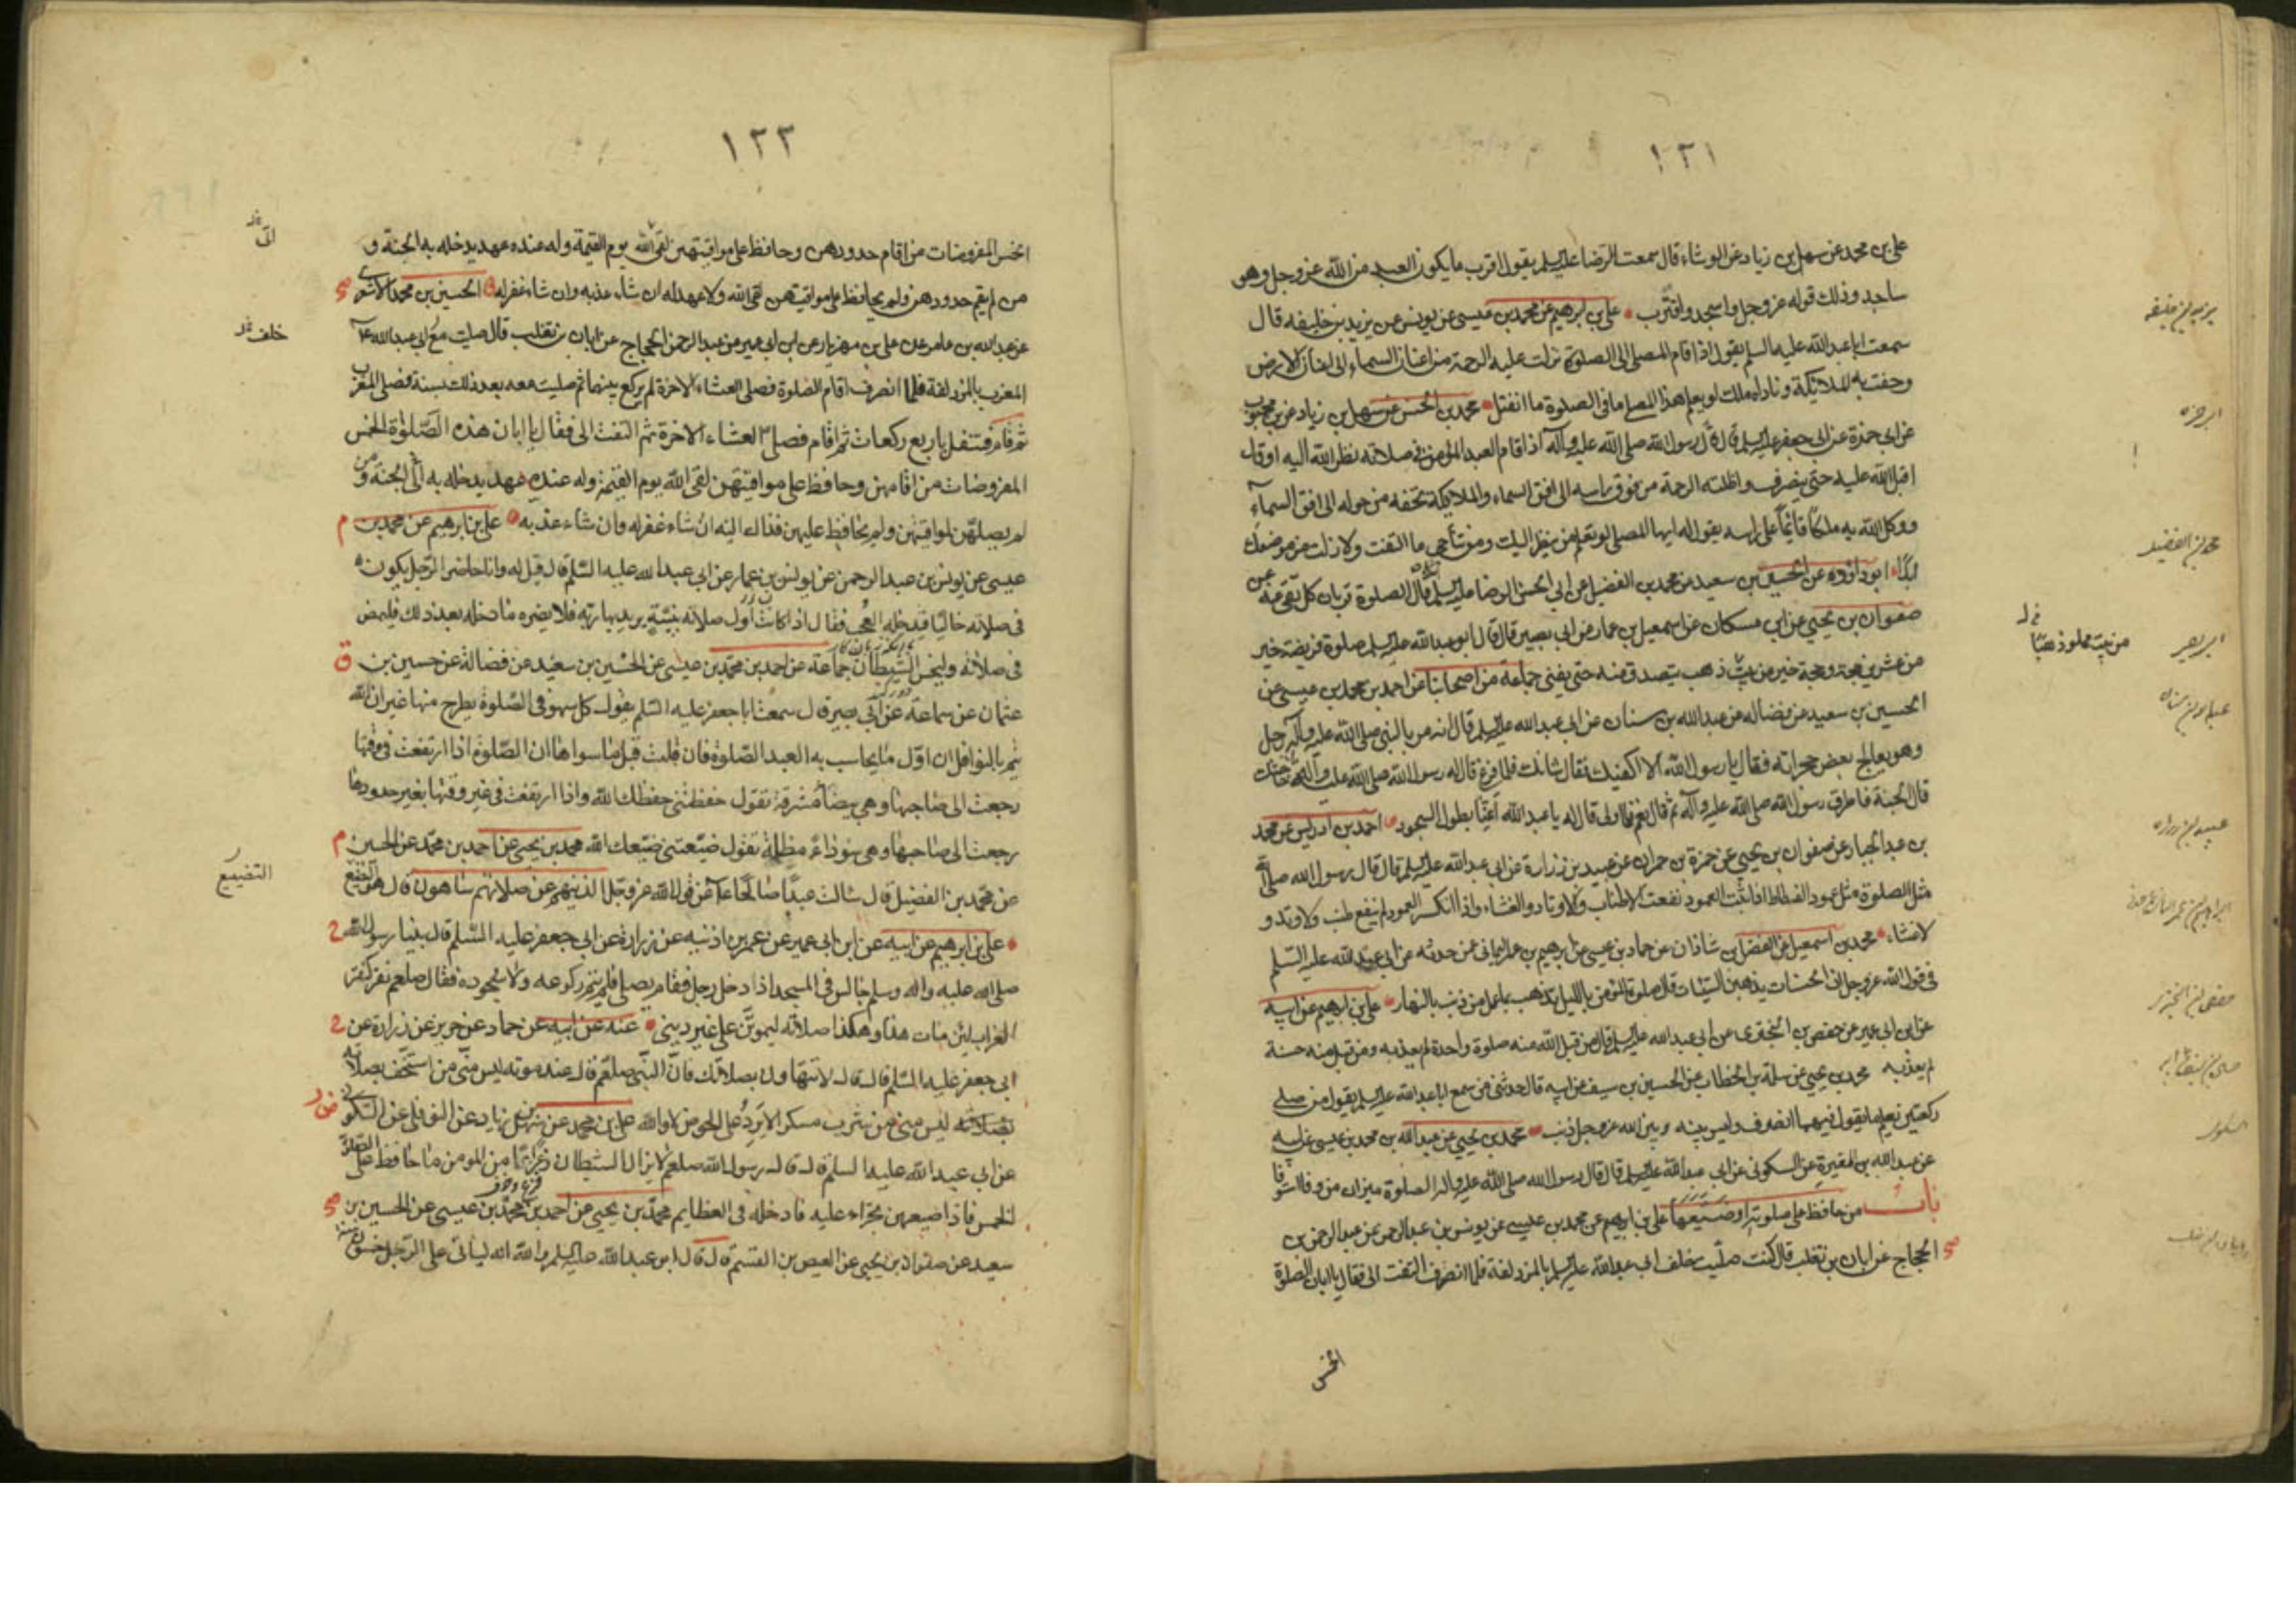 ١٢١
على بن محمد عن سهل بن زياد عن الوشاء قال سمعت الرضا عليه السلم يقول اقرب ما يكون العبد من الله عز وجل وهو
ساجد وذلك قوله عز وجل واسجد واقترب على بن ابرهيم عن محمد بن عيسى عن يونس عن يزيد بن خليفه قال
سمعت ابا عبدالله عليه السلم يقول اذا قام المصلى الى الصلوة نزلت عليه الرحمة من اعنان السماء الى اعنان الارض
وحفت به الملائكة وناداه ملك لو يعلم هذا المصلى ما فى الصلوة ما انفتل محمد بن الحسن عن سهل بن زياد عن بن محبوب
عن ابى حمزة عن ابى جعفر عليه السلم قال قال رسول الله صلى الله عليه وآله اذا قام العبد المؤمن فى صلاته نظر الله اليه او قال
اقبل الله عليه حتى ينصرف واظلته الرحمة من فوق راسه الى افق السماء والملائكة تحفه من حوله الى افق السماء
ووكل الله به ملكا قائما على راسه يقول له ايها المصلى لو تعلم من ينظر اليك ومن تناجى ما التفت ولا زلت من موضعك
ابدا ابو داود عن الحسين بن سعيد عن محمد بن الفضيل عن ابى الحسن الرضا عليه السلم قال الصلوة قربان كل تقى عنه عن
صفوان بن يحيى عن ابن مسكان عن اسمعيل بن عمار عن ابى بصير قال قال ابو عبدالله عليه السلم صلوة فريضة خير
من عشرين حجة وحجة خير من بيت ذهب يتصدق منه حتى يفنى جماعة من اصحابنا عن احمد بن محمد بن عيسى عن
الحسين بن سعيد عن فضاله عن عبدالله بن سنان عن ابى عبدالله عليه السلم قال انه مر بالنبى صلى الله عليه وآله رجل
وهو يعالج بعض حجراته فقال يا رسول الله الا اكفيك فقال شانك فلما فرغ قال له رسول الله صلى الله عليه وآله حاجتك
قال الجنة فاطرق رسول الله صلى الله عليه وآله ثم قال نعم فلما ولى قال له يا عبد الله اعنا بطول السجود احمد بن ادريس عن محمد
بن عبد الجبار عن صفوان بن يحيى عن حمزة بن حمران عن عبيد بن زرارة عن ابى عبدالله عليه السلم قال قال رسول الله صلى الله
مثل الصلوة مثل عمود الفسطاط اذا ثبت العمود نفعت الاطناب والاوتاد والغشاء واذا انكسر العمود لم ينفع طنب ولا وتد و
لا غشاء محمد بن اسمعيل عن الفضل بن شاذان عن حماد بن عيسى عن ابرهيم بن عمر اليمانى عمن حدثه عن ابى عبد الله عليه السلم
فى قول الله عز وجل ان الحسنات يذهبن السيئات قال صلوة المؤمن بالليل تذهب بما عمل من ذنب بالنهار على بن ابرهيم عن ابيه
عن ابن ابى عمير عن حفص بن البخترى عن ابى عبدالله عليه السلم قال من قبل الله منه صلوة واحدة لم يعذبه ومن قبل منه حسنة
لم يعذبه محمد بن يحيى عن سلمة بن الخطاب عن الحسين بن سيف عن ابيه قال حدثنى من سمع ابا عبدالله عليه السلم يقول من صلى
ركعتين يعلم ما يقول فيهما انصرف وليس بينه وبين الله عز وجل ذنب محمد بن يحيى عن عبدالله بن محمد بن عيسى عن ابيه
عن عبدالله بن المغيرة عن السكونى عن ابى عبدالله عليه السلم قال قال رسول الله صلى الله عليه وآله الصلوة ميزان من وفا استوفا
باب من حافظ على صلوته او ضيعها على بن ابرهيم عن محمد بن عيسى عن يونس بن عبد الرحمن عن عبد الرحمن بن
الحجاج عن ابان بن تغلب قال كنت صليت خلف ابى عبدالله عليه السلم بالمزدلفة فلما انصرف التفت الى فقال يا ابان الصلوة
الخمس
يزيد بن خليفه
ابى حمزه
محمد بن الفضيل
من بيت مملو ذهبا
ابى بصير
عبدالله بن سنان
عبيد بن زراره
السكونى
١٢٢
الخمس المفروضات من اقام حدودهن وحافظ على مواقيتهن لقى الله يوم القيمة وله عنده عهد يدخله به الجنة و
من لم يقم حدودهن ولم يحافظ على مواقيتهن لقى الله ولا عهد له ان شاء عذبه وان شاء غفر له الحسين بن محمد الاشعرى
عن عبد الله بن عامر عن على بن مهزيار عن ابن ابى عمير عن عبد الرحمن الحجاج عن ابان بن تغلب قال صليت مع ابى عبدالله ع
المغرب بالمزدلفة فلما انصرف اقام الصلوة فصلى العشاء الاخرة لم يركع بينهما ثم صليت معه بعد ذلك بسنة فصلى المغرب
ثم قام فتنفل باربع ركعات ثم اقام فصلى العشاء الاخرة ثم التفت الى فقال يا ابان هذه الصلوة الخمس
المفروضات من اقامهن وحافظ على مواقيتهن لقى الله يوم القيمة وله عنده عهد يدخله به الجنة ومن
لم يصلهن لمواقيتهن ولم يحافظ عليهن فذاك اليه ان شاء غفر له وان شاء عذبه على بن ابرهيم عن محمد بن
عيسى عن يونس بن عبد الرحمن عن يونس بن عمار عن ابى عبد الله عليه السلم قال قيل له وانا حاضر الرجل يكون
فى صلاته خاليا فيدخله العجب فقال اذا كانت اول صلاته بنية يريد بها ربه فلا يضره ما دخله بعد ذلك فليمض
فى صلاته وليخس الشيطان جماعة عن احمد بن محمد بن عيسى عن الحسين بن سعيد عن فضالة عن حسين بن
عثمان عن سماعة عن ابى بصير قال سمعت ابا جعفر عليه السلم يقول كل سهو فى الصلوة يطرح منها غير ان الله
يتم بالنوافل ان اول ما يحاسب به العبد الصلوة فان قبلت قبل ما سواها ان الصلوة اذا ارتفعت فى وقتها
رجعت الى صاحبها وهى بيضاء مشرقة تقول حفظتنى حفظك الله واذا ارتفعت فى غير وقتها بغير حدودها
رجعت الى صاحبها وهى سوداء مظلمة تقول ضيعتنى ضيعك الله محمد بن يحيى عن احمد بن محمد عن الحسين
عن محمد بن الفضيل قال سالت عبدا صالحا ع عن قول الله عز وجل الذينهم عن صلاتهم ساهون قال هو التضيع
على بن ابرهيم عن ابيه عن ابن ابى عمير عن عمر بن اذينه عن زرارة عن ابى جعفر عليه السلم قال بينا رسول الله
صلى الله عليه واله وسلم جالس فى المسجد اذا دخل رجل فقام يصلى فلم يتم ركوعه ولا سجوده فقال صلعم نقر كنقر
الغراب لئن مات هذا وهكذا صلاته ليموتن على غير دينى عنه عن ابيه عن حماد عن حريز عن زرارة عن
ابى جعفر عليه السلم قال قال لا تتهاون بصلاتك فان النبى صلعم قال عند موته ليس منى من استخف بصلاته
ليس منى من شرب مسكرا لا يرد على الحوض لا والله على بن محمد عن سهل بن زياد عن النوفلى عن السكونى
عن ابى عبد الله عليه السلم قال قال رسول الله صلعم لا يزال الشيطان ذعرا من المومن ما حافظ على الصلوة
الخمس فاذا ضيعهن تجراء عليه فادخله فى العظايم محمد بن يحيى عن احمد بن محمد بن عيسى عن الحسين بن
سعيد عن صفوان بن يحيى عن العيص بن القسم قال قال ابو عبد الله عليه السلم والله انه لياتى على الرجل خمسون سنة
خلف
التضييع